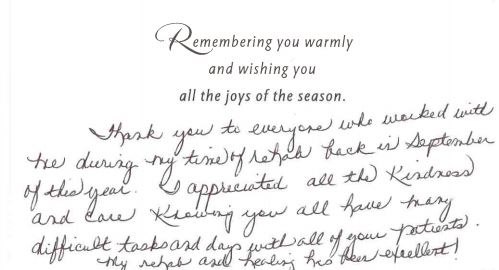 Remembering you warmly
and wishing you
all the joys of the season.
Thank you to everyone who worked with
me during my time of rehab back in September
of this year. I appreciated all the Kindness
and care Knowing you all have many
difficult tasks and days with all of your patients.
My rehab and healing his been excellent!